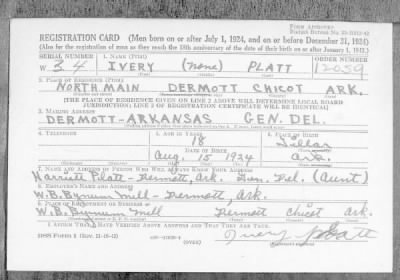 FORM APPROVED
REGISTRATION CARD (Men born on or after July 1, 1924, and on or before December 31, 1924)
(Also for the registration of men as they reach the 18th anniversary of the date of their birth on or after January 1, 1943.)
SERIAL NUMBER 1. NAME (Print) ORDER NUMBER
W 34 IVERY (none) PLATT 12059
2. PLACE OF RESIDENCE (Print)
NORTH MAIN DERMOTT CHICOT ARK.
[THE PLACE OF RESIDENCE GIVEN ON LINE 2 ABOVE WILL DETERMINE LOCAL BOARD
JURISDICTION; LINE 2 OF REGISTRATION CERTIFICATE WILL BE IDENTICAL]
3. MAILING ADDRESS
DERMOTT-ARKANSAS GEN. DEL.
4. TELEPHONE 5. AGE IN YEARS 6. PLACE OF BIRTH
18 Tillar
DATE OF BIRTH
Aug. 15 1924 Ark
7. NAME AND ADDRESS OF PERSON WHO WILL ALWAYS KNOW YOUR ADDRESS
Harriett Platt - Dermott, Ark. Gen. Del. (Aunt)
8. EMPLOYER'S NAME AND ADDRESS
W. B. Bynum Mill - Dermott, Ark.
9. PLACE OF EMPLOYMENT OR BUSINESS
W. B. Bynum Mill Dermott Chicot Ark.
I AFFIRM THAT I HAVE VERIFIED ABOVE ANSWERS AND THAT THEY ARE TRUE.
DSS Form 1 (Rev. 11-16-42) (OVER) Ivery Platt